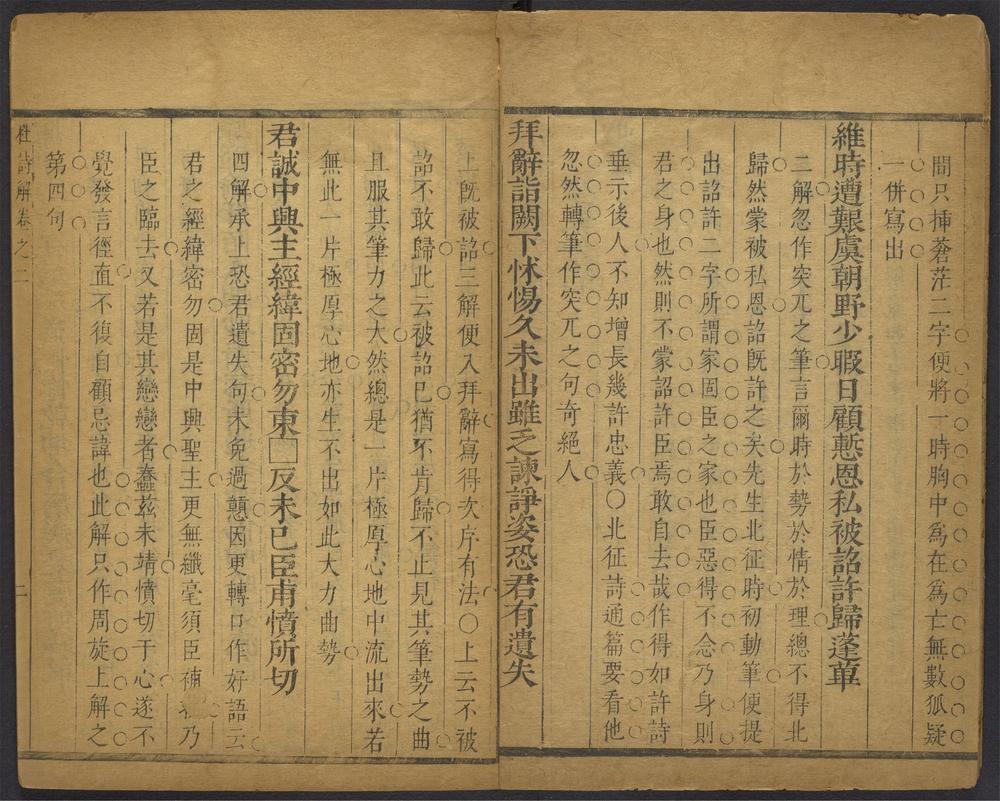 間只挿蒼茫二字便將一時胸中為在為亡無數狐疑
一併寫出
維時遭艱虞朝野少暇日顧慙恩私被詔許歸蓬蓽
二解忽作突兀之筆言爾時於勢於情於理總不得北
歸然蒙被私恩詔旣許之矣先生北征時初動筆便提
出詔許二字所謂家固臣之家也臣惡得不念乃身則
君之身也然則不蒙詔許臣焉敢自去哉作得如許詩
垂示後人不知增長幾許忠義〇北征詩通篇要看他
忽然轉筆作突兀之句奇絕人
拜辭詣闕下怵惕久未出雖乏諫諍姿恐君有遺失
上旣被詔三解便入拜辭寫得次序有法〇上云不被
詔不敢歸此云被詔已猶不肯歸不止見其筆勢之曲
且服其筆力之大然總是一片極厚心地中流出來若
無此一片極厚心地亦生不出如此大力曲勢
君誠中興主經緯固密勿東□反未已臣甫憤所切
四解承上恐君遺失句未免過戇因更轉口作好語云
君之經緯密勿固是中興聖主更無纖毫須臣補乃
臣之臨去又若是其戀戀者蠢茲未靖憤切于心遂不
覺發言徑直不復自顧忌諱也此解只作周旋上解之
第四句
杜詩解卷之二
二